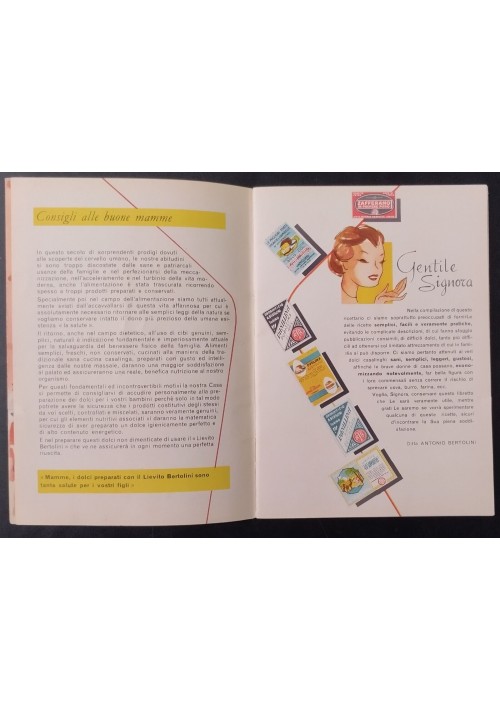 Consigli alle buone mamme
In questo secolo di sorprendenti prodigi dovuti
alle scoperte del cervello umano, le nostre abitudini
si sono troppo discostate dalle sane e patriarcali
usanze della famiglia e nel perfezionarsi della mecca-
nizzazione, nell'acceleramento della vita mo-
derna, anche l'alimentazione è stata trascurata ricorrendo
spesso a troppi prodotti preparati e conservati.
Specialmente poi nel campo dell'alimentazione siamo tutti
vamente dell'esistenza di questa vita affannosa per cui è
assolutamente necessario ritornare alle semplici leggi della natura se
vogliamo conservare intatto il dono più prezioso della umana esi-
stenza: « la salute ».
Il ritorno, anche nel campo dietetico, all'uso di cibi genuini, sem-
plici, naturali è indicazione fondamentale e imperiosamente attuale
per la salvaguardia del benessere fisico della famiglia. Alimenti
semplici, freschi, non conservati, cucinati alla maniera della tra-
dizionale sana cucina casalinga, preparati con gusto ed intelli-
genza dalle nostre massaie, daranno una maggior soddisfazione
al palato ed assicureranno una reale, benefica nutrizione al nostro
organismo.
Per questi fondamentali ed incontrovertibili motivi la nostra Casa
si permette di consigliarvi di accudire personalmente alla pre-
parazione dei dolci per i vostri bambini perchè solo in tal modo
potrete avere la sicurezza che i prodotti costitutivi degli stessi
da voi scelti, controllati e miscelati, saranno veramente genuini,
per cui gli elementi nutritivi associati vi daranno la matematica
sicurezza di aver preparato un dolce igienicamente perfetto e
di alto contenuto energetico.
E nel preparare questi dolci non dimenticate di usare il « Lievito
Bertolini » che ve ne assicurerà in ogni momento una perfetta
riuscita.
« Mamme, i dolci preparati con il Lievito Bertolini sono
tanta salute per i vostri figli »
Gentile
Signora
Nella compilazione di questo
ricettario ci siamo soprattutto preoccupati di fornirLe
delle ricette semplici, facili e veramente pratiche,
evitando le complicate descrizioni, di cui fanno sfoggio
pubblicazioni consimili, di difficili dolci, tanto più diffi-
cili ad ottenersi col limitato attrezzamento di cui in fami-
glia si può disporre. Ci siamo pertanto attenuti ai veri
dolci casalinghi sani, semplici, leggeri, gustosi,
affinchè le brave donne di casa possano, econo-
mizzando notevolmente, far bella figura con
i loro commensali senza correre il rischio di
sprecare uova, burro, farina, ecc.
Voglia, Signora, conservare questo libretto
che Le sarà veramente utile, mentre
grati Le saremo se vorrà sperimentare
qualcuna di queste ricette, sicuri
d'incontrare la Sua piena soddi-
sfazione.
Ditta ANTONIO BERTOLINI